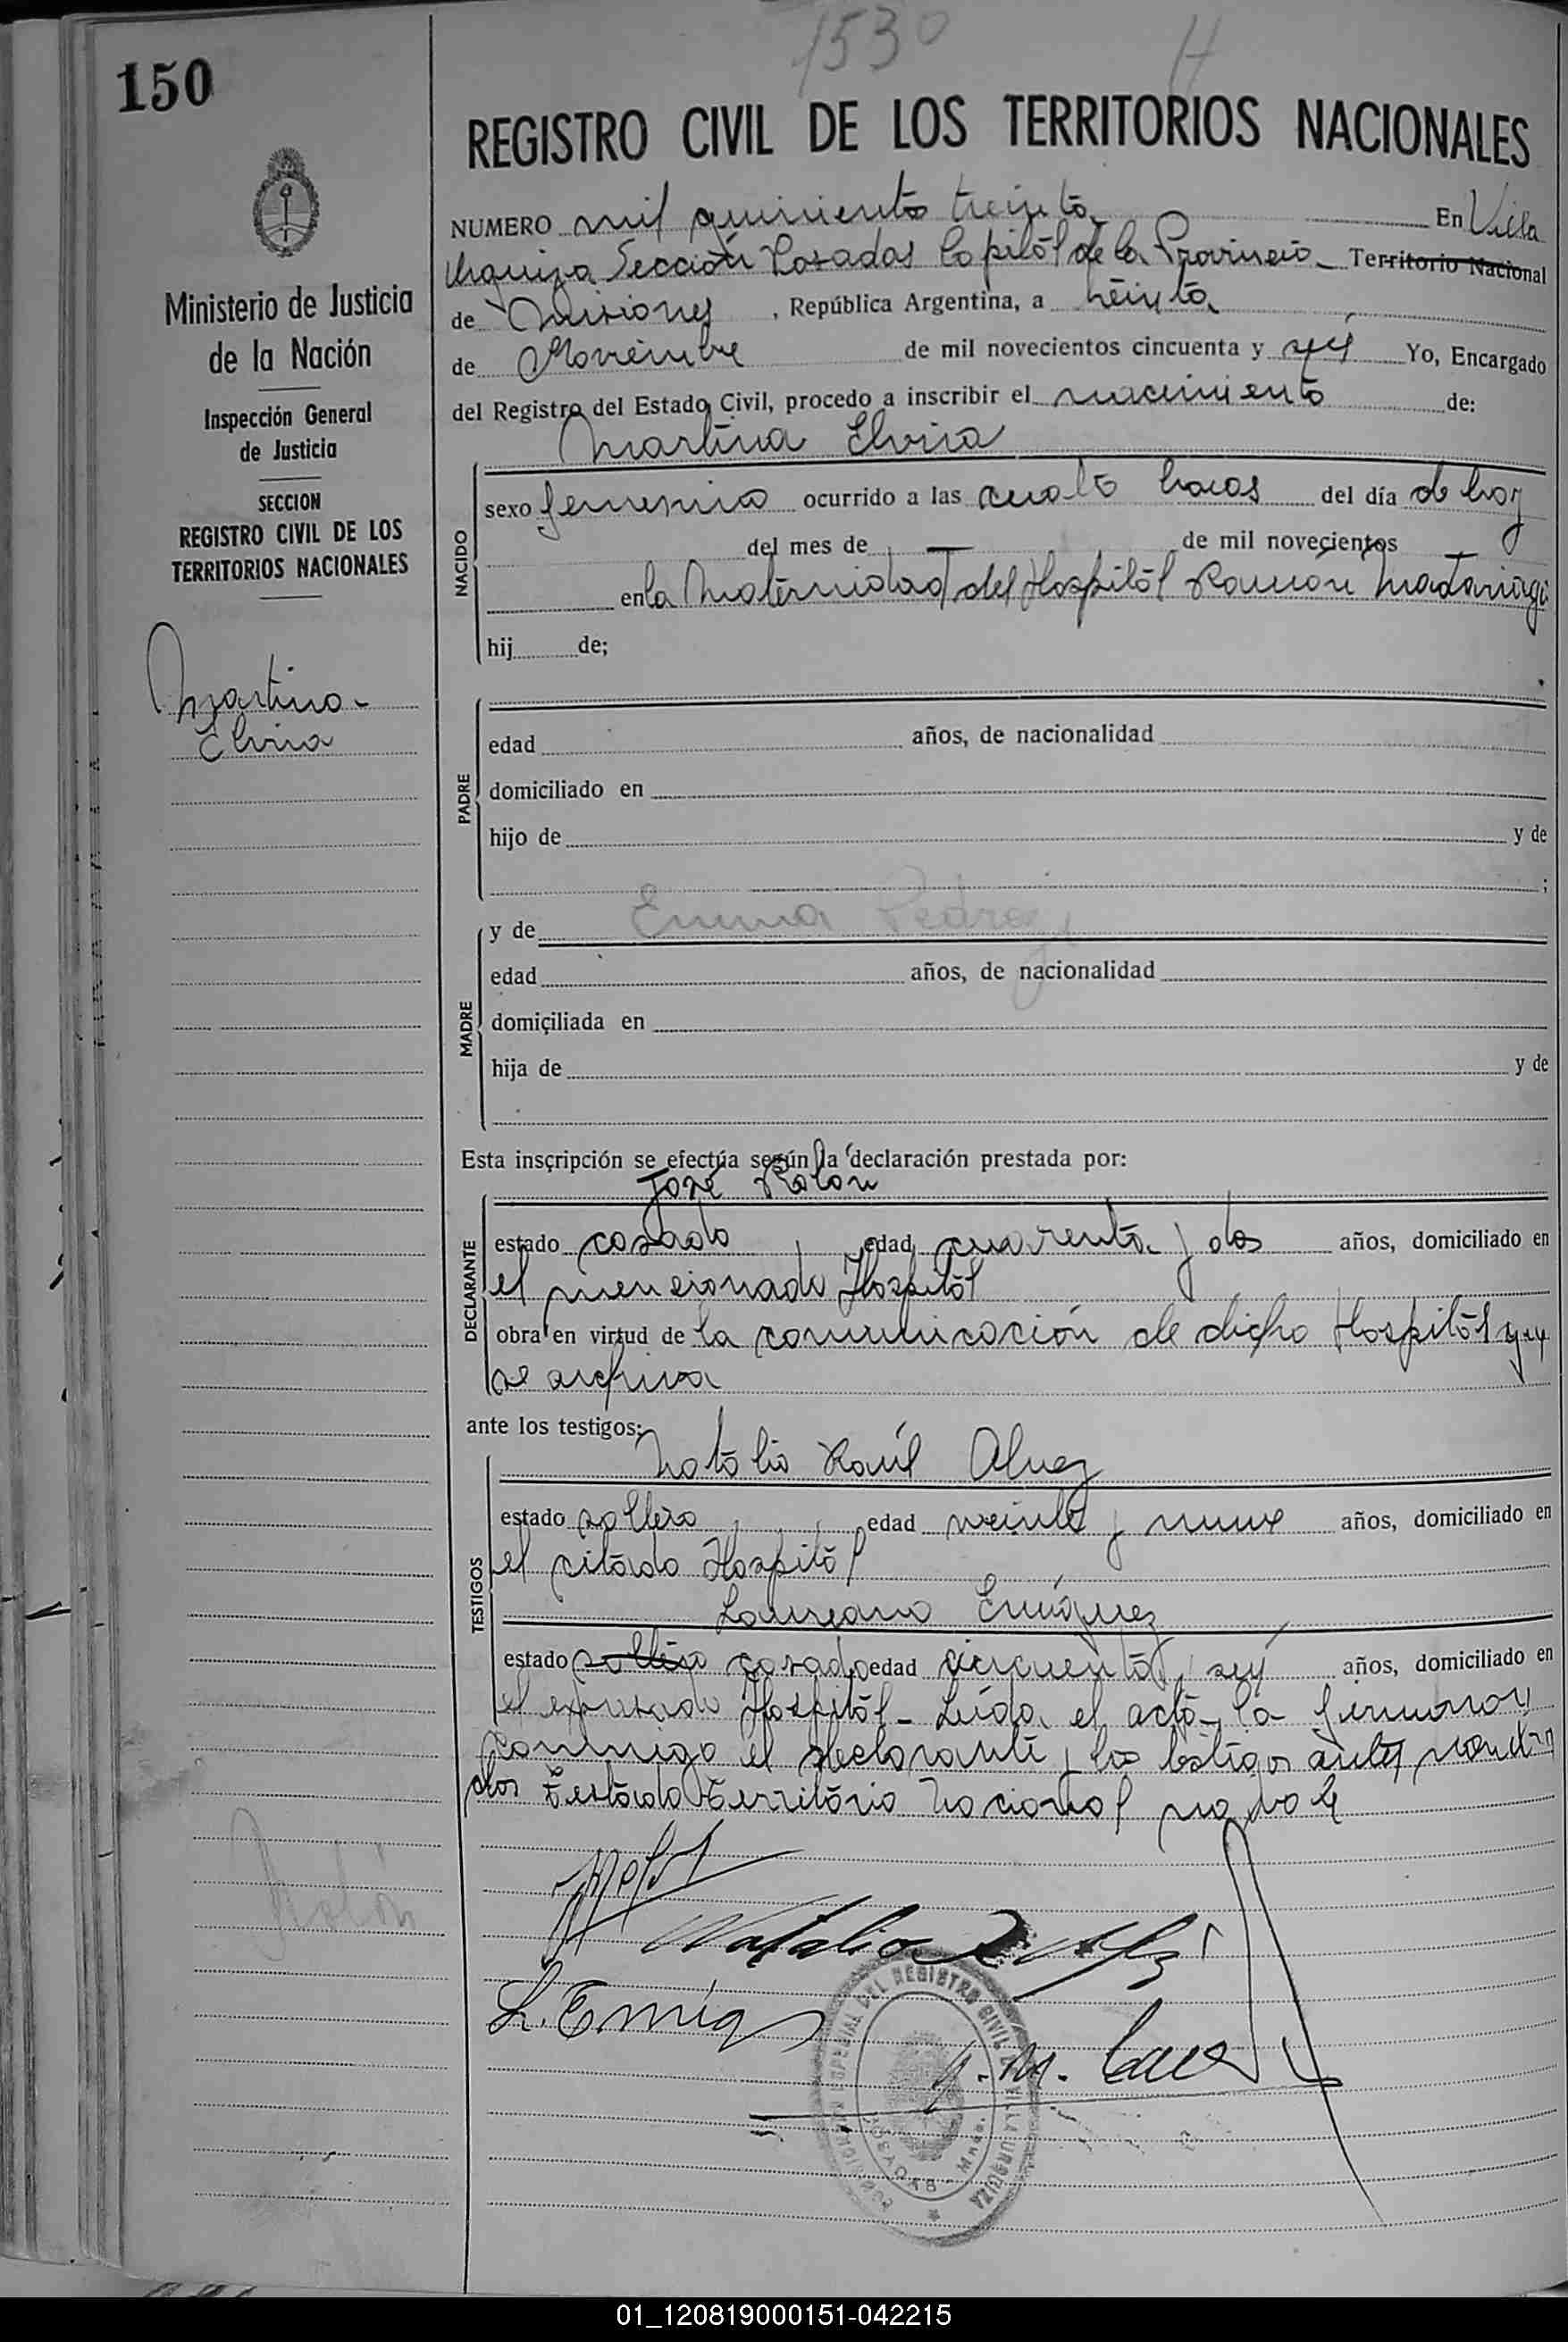 1530 H
150
REGISTRO CIVIL DE LOS TERRITORIOS NACIONALES
NUMERO mil quinientos treinta En Villa
Urquiza Sección Posadas Capital de la Provincia Territorio Nacional
de Misiones, República Argentina, a treinta
de Noviembre de mil novecientos cincuenta y seis Yo, Encargado
del Registro del Estado Civil, procedo a inscribir el nacimiento de:
Martina Elvira
NACIDO
sexo femenino ocurrido a las cuatro horas del día de hoy
del mes de — de mil novecientos —
en la Maternidad del Hospital Ramón Madariaga
hij de;
PADRE
edad años, de nacionalidad
domiciliado en
hijo de y de
;
MADRE
y de Emma Pedrozo
edad años, de nacionalidad
domiciliada en
hija de y de
Esta inscripción se efectúa según la declaración prestada por:
José Rolón
DECLARANTE
estado casado edad cuarenta y dos años, domiciliado en
el mencionado Hospital
obra en virtud de la comunicación de dicho Hospital que
se archiva
ante los testigos:
Natalio Raúl Alvez
TESTIGOS
estado soltero edad veinte y nueve años, domiciliado en
el citado Hospital
Laureano Enríquez
estado soltero casado edad cincuenta y seis años, domiciliado en
el expresado Hospital - Leída el acta la firmaron
conmigo el declarante y los testigos antes nombra
dos Testado Territorio Nacional no vale
Natalio R
L. Enriq
Ministerio de Justicia
de la Nación
Inspección General
de Justicia
SECCION
REGISTRO CIVIL DE LOS
TERRITORIOS NACIONALES
Martina
Elvira
Rolón
DEL REGISTRO CIVIL VILLA URQUIZA
POSADAS - Mnes.
01_120819000151-042215